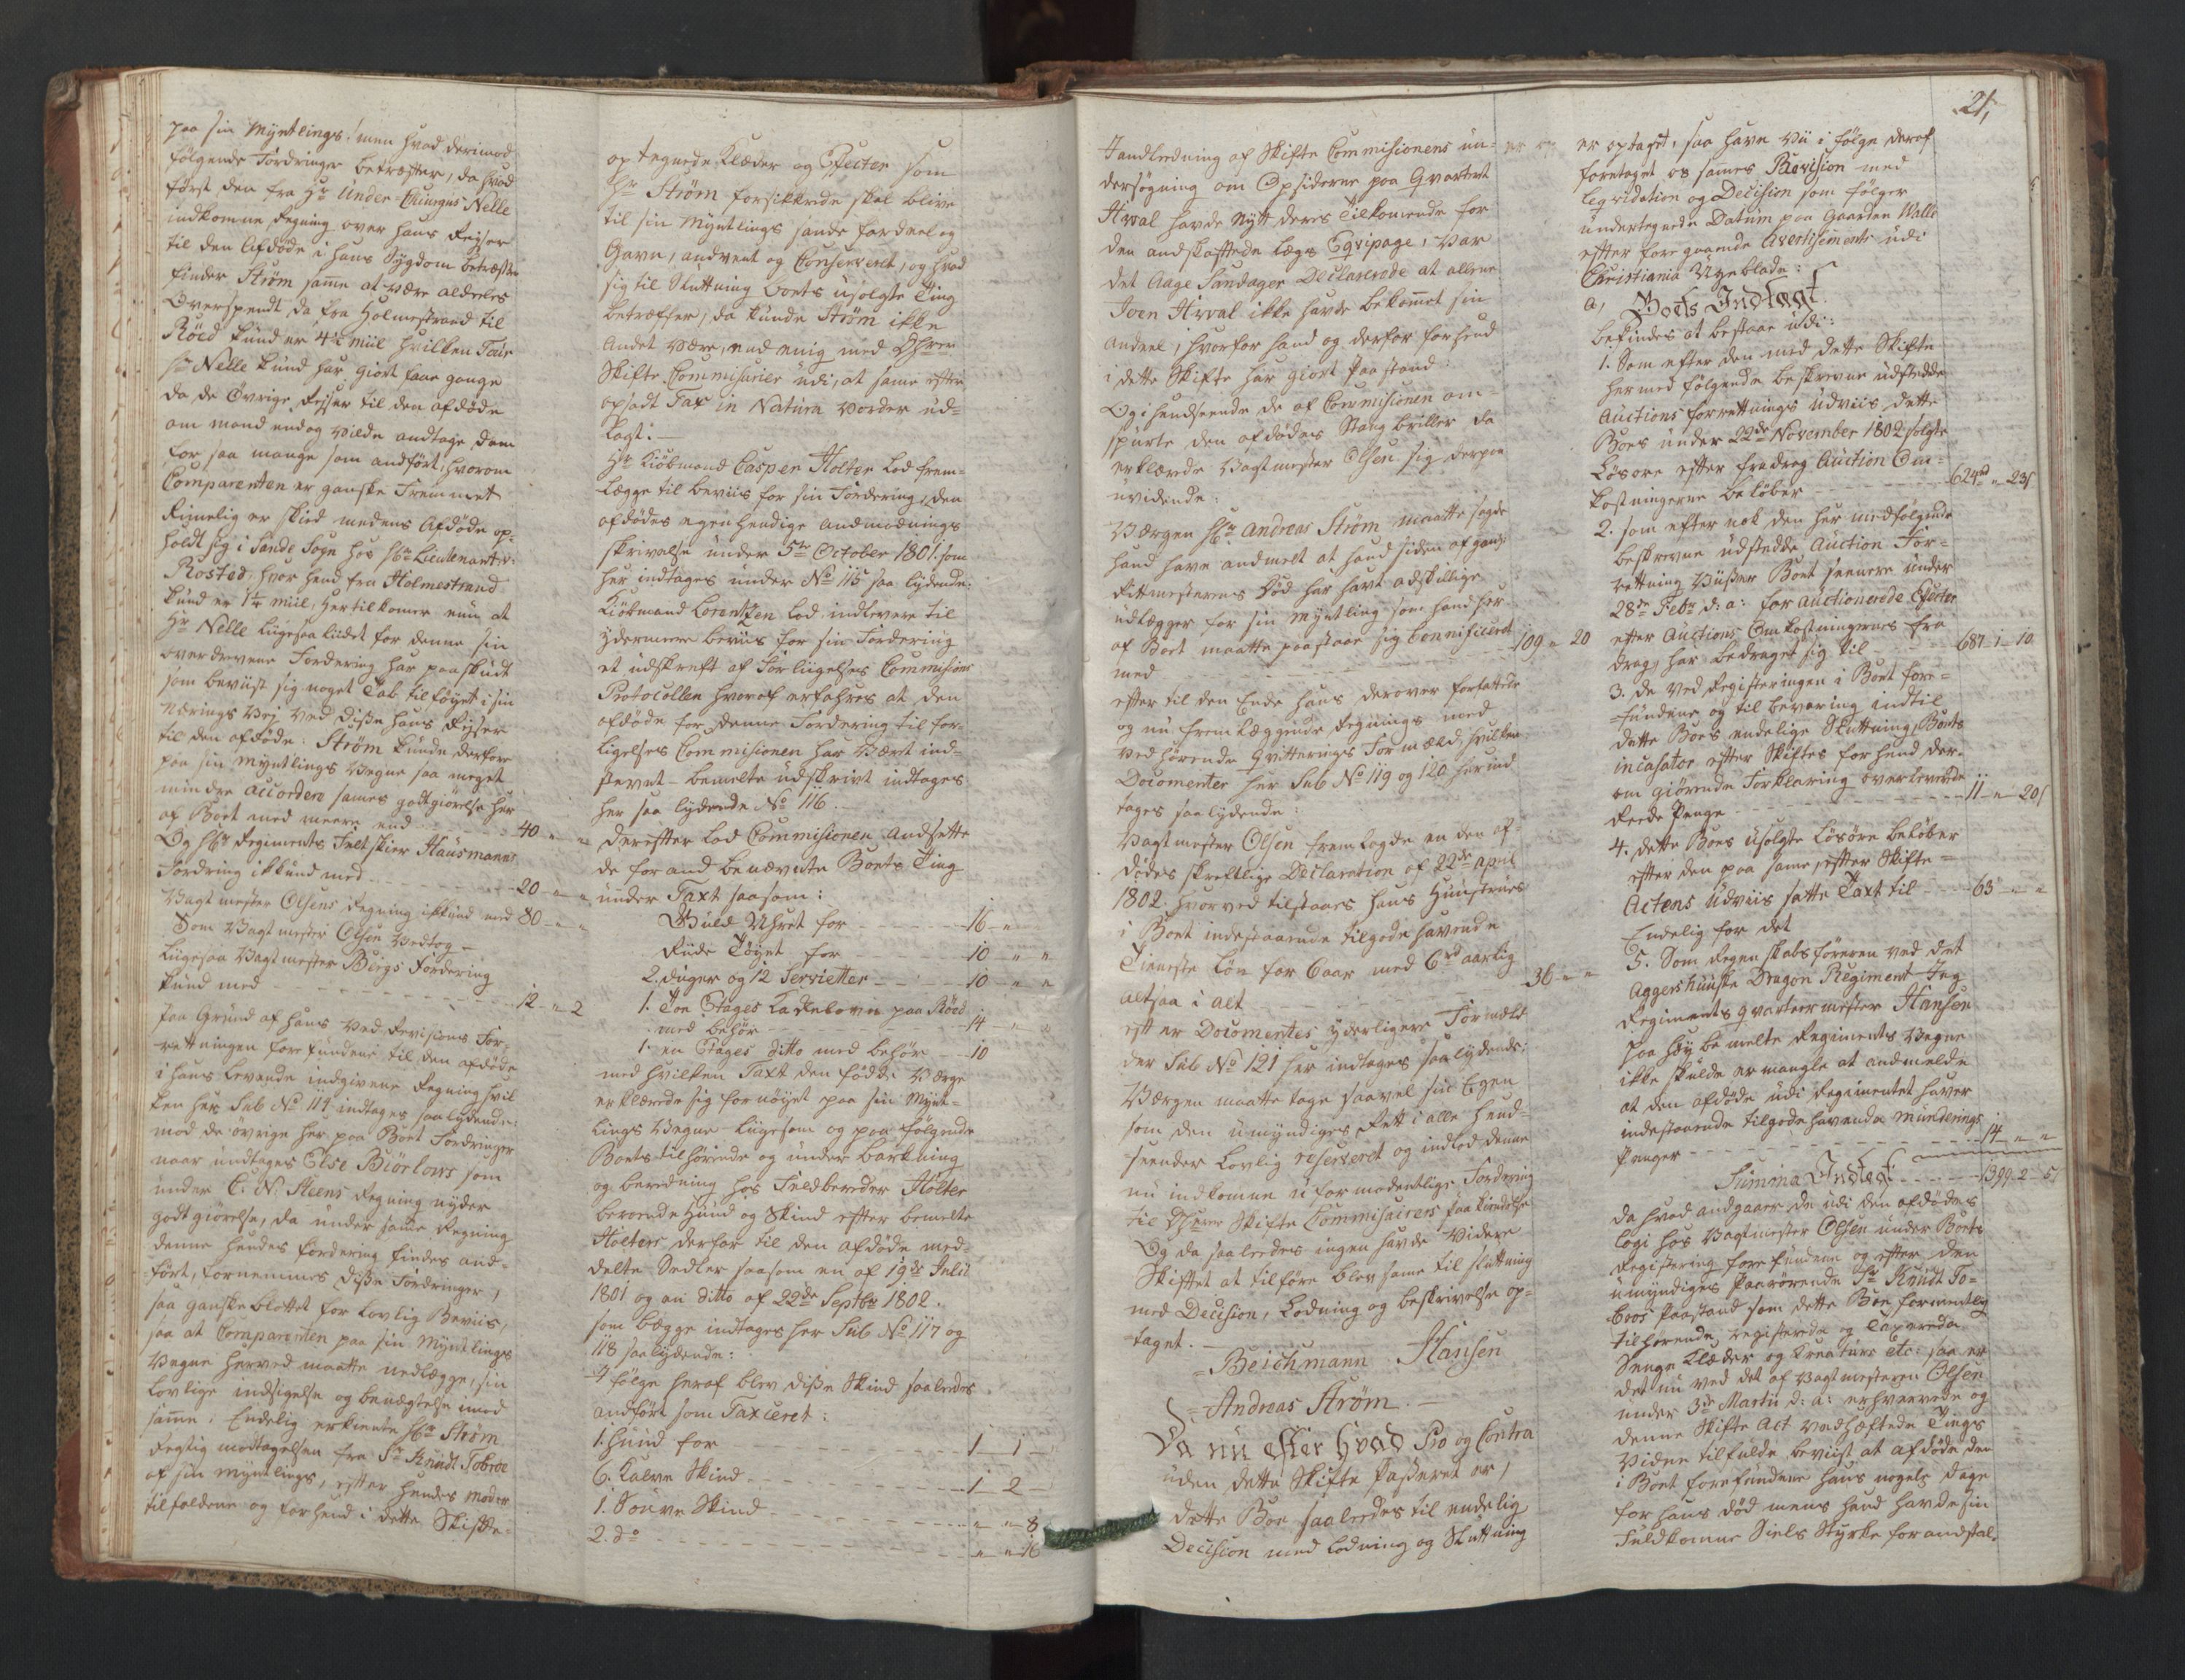 paa sin Myntlings! men hvad derimod
følgende Fordringer betræffer, da hvad
først den fra Hr. Under Chirurgus Nelle
indkomne Regning over hans Rejser
til den Afdøde i hans Sygdom betræffer
finder Strøm samme at være aldeles
Overspendt da fra Holmestrand til
Røed kund er 4½ Miil hvilken Tour
Hr. Nelle kund har giort faae gange
da de Øvrige Rejser til den afdøde
om mand endog vilde andtage dem
for saa mange som andført, hvorom
Comparenten er ganske Fremmet
Rimelig er skied medens Afdøde op-
holdt sig i Sande Sogn hos Hr. Lieutenant v:
Rosted, hvor hend fra Holmestrand
kund er 1¼ Miil, hertil kommer nu at
Hr. Nelle liigesaa liidet for denne sin
overdrevene Fordering har paaskudt
som beviist sig noget Tab tilføyet i sin
Nærings Vej ved disse hans Rejser
til den afdøde: Strøm kunde derfore
paa sin Myntlings Vegne saa meget
mindre accordere sames godtgiørelse her
af Boet med meere end - - - 40 - " - "
Og Hr. Regiments Feltskier Hausmanns
Fordring ikkund med - - - 20 - " - "
Vagtmester Olsens Regning ikkund med 80 - " - "
Som Vagtmester Olsen Vedtog -
Liigesaa Vagtmester Bergs Fordering
kund med - - - 12 - " - 2
paa Grund af hans ved Revisions For-
retningen forefundene til den afdøde
i hans levende indgivene Regning hvil
ken her Sub No 114 indtages saa lydende:
mod de øvrige her paa Boet Fordringer
naar undtages Else Biørlous som
under C. N. Steens Regning nyder
godtgiørelse, da under samme Regning
denne hendes fordering findes and-
ført, fornemmes disse Fordringer,
saa ganske blottet for Lovlig Beviis,
saa at Comparenten paa sin Myntlings
Vegne herved maatte nedlægge, sin
Lovlige indsigelse og benægtelse mod
samme: Endelig erkiente Hr. Strøm
Rigtig modtagelsen fra Sr. Knudt Tobroe
af sin Myntlings, efter hendes Moder
tilfaldene og forhend i dette Skifte
optegnede Klæder og Effecter som
Hr. Strøm forsikkrede skal blive
til sin Myntlings sande fordeel og
Gavn, andvent og Conserveret, og hvad
sig til Sluttning Boets usolgte Ting
betræffer, da kunde Strøm ikke
Andet være, end enig med Dhrrer
Skifte Commisarier udi, at same efter
opsadt Tax in Natura vorder ud-
lagt: -
Hr. Kiøbmand Casper Holter lod frem-
lægge til beviis for sin Fordering, den
afdødes egenhendige Andmodnings
skrivelse under 5te October 1801. som
her indtages under No 115 saa lydende:
Kiøbmand Lorentzen lod indlevere til
ydermere beviis for sin Fordering
et udskrift af Forliigelses Commisions
Protocollen hvoraf erfahres at den
afdøde for denne Fordering til for-
ligelses Commisionen har været ind-
stevnt - bemelte udskrivt indtages
her saa lydende No 116. -
Derefter lod Commisionen andsætte
de forand benævnte Boets Ting
under Taxt saasom:
Guld Uhret for - - - 16 - "
Ride Tøyet for - - - 10 - " - "
2. duger og 12 Servietter - - - 10 - " - "
1. Toe Etages Kakelovn paa Røed
med behør - - - 14 - " - "
1. en Etages ditto med behør - - 10
med hvilken Taxt den fødde Værge
erklærede sig fornøyet paa sin Mynt-
lings Vegne - liigesom og paa følgende
Boets tilhørende og under barkning
og beredning hos Feldbereder Holter
beroende Hund og Skind efter bemelte
Holters derfor til den afdøde med-
delte Sedler saasom en af 19de Julii
1801 og en ditto af 22de Septbr 1802.
som begge indtages her Sub No 117 og
118 saa lydende:
I følge heraf blev disse Skind saaledes
andført som Taxeret:
1. hund for - - - 1 - 1 -
6. Kalve Skind - - - 1 - 2 -
1. Souve Skind - - - " - " - 8.
2. do - - - " - " - 16
21,
Handledning af Skifte Commisionens un-
dersøgning om Opsiderne paa Qvartert
Hval havde nytt deres Tilkomende for
den andskaffede Lægs Eqvipage, var
det Aage Sandager Declarerede at allene
Joen Hval ikke havde bekomet sin
andeel, hvorfor hand og derfor forhend
i dette Skifte har giort Paastand:
Og i hendseende de af Commisionen om-
spurte den afdødes Stangbriller da
erklærede Vagtmester Olsen sig derpaa
uvidende:
Værgen Hr. Andreas Strøm maatte sagde
hand have andmelt at hand siden afgangne
Ritmesterens Død har havt adskillige
udlægger for sin Myntling som hand her
af Boet maatte paastaae sig bonnificeret
med - - - 109 - " 20
efter til den Ende hans derover forfattede
og nu fremlæggende Regnings med
vedhørende Qvitterings Formæld, hvilken
Documenter her Sub No 119 og 120 her ind
tages saa lydende:
Vagtmester Olsen fremlagde en den af-
dødes skriftlige Declaration af 22de April
1802. hvorved tilstaaes hans Huustrues
i Boet indestaaende tilgodehavende
Tieneste Løn for 6 aar med 6rd aarlig
altsaa i alt - - - 36 - " - "
efter Documentes yderligere Formæld
der Sub No 121 her indtages saa lydende:
Værgen maatte tage saavel sin Egen
som den umyndiges Rett i alle hend-
seender Lovlig reserveret og indlod denne
nu indkomne uformodentlige Fordering
til Dherrer Skifte Commisairers paakiendelse
Og da saaledes ingen havde videre
Skiftet at tilføre blev same til sluttning
med Decision, Lodning og beskrivelse op-
taget. -
Beichmann Hansen
Andreas Strøm. -
Da nu efter hvad Pro og Contra
uden dette Skifte Passeret er,
dette Boe saaledes til endelig
Decision med Lodning og Slutning
er optaget, saa have vii i følge deraf
foretaget os sammes Revision med
Leqvidation og Decision som følger
undertegnede Datum paa Gaarden Walle
efter foregaaende Avertisements udi
Christiania Uge blade:
a, Boets Indtægt.
befindes at bestaae udi:
1. Som efter den med dette Skifte
hermed følgende beskrevne udstedde
Auctions forrettnings Udviis dette
Boes under 22de November 1802 solgte
Løsøre efter fradrag Auction Om-
kostningerne beløber - - - 624rd " 23s
2. som efter nok den her medfølgende
beskrevne udstedde Auction For-
rettning viiser Boet senere under
28de Febr. d: a: for auctionerede Effecter
efter Auctions Omkostningernes fra
drag, har bedraget sig til - - - 687 - 1 - 10.
3. de ved Registeringen i Boet fore-
fundene og til bevaring indtil
dette Boes endelige Sluttning, Boets
incasator efter Skiftes forhend der-
om giørende Forklaring overleverede
Rede Penge - - - 11 - " - 20s
4. dette Boes usolgte Løsøre beløber
efter den paa same efter Skifte-
Actens Udviis satte Taxt til - - - 63 - " - "
Endelig for det
5. Som Regenskabsføreren ved det
Aggershuuske Dragon Regiment Jeg
Regiments qvarteermester Hansen
paa høybemelte Regiments Vegne
ikke skulde ermangle at andmelde
at den afdøde udi Regimentet haver
indestaaende tilgodehavende Munderings
Penger - - - 14 - " - "
Summa Indtægt - - - 1399 - 2 - 5s
da hvad andgaaer de udi den afdødes
Logi hos Vagtmester Olsen under Boets
Registering forefundene og efter den
umyndiges Paarørende Sr. Knudt To-
broes Paastand som dette Boe formentlig
tilhørende registerede og Taxerede
Senge Klæder og Kreature etc: saa er
det nu ved det af Vagtmesteren Olsen
under 3de Martii d: a: erhvervede og
denne Skifte Act vedhæftede Tings
vidne tilfulde beviist at afdøde den
i Boet forefundene hans nogle dage
for hans død mens hand havde sin
Fuldkomne Siels Styrke forandstal-